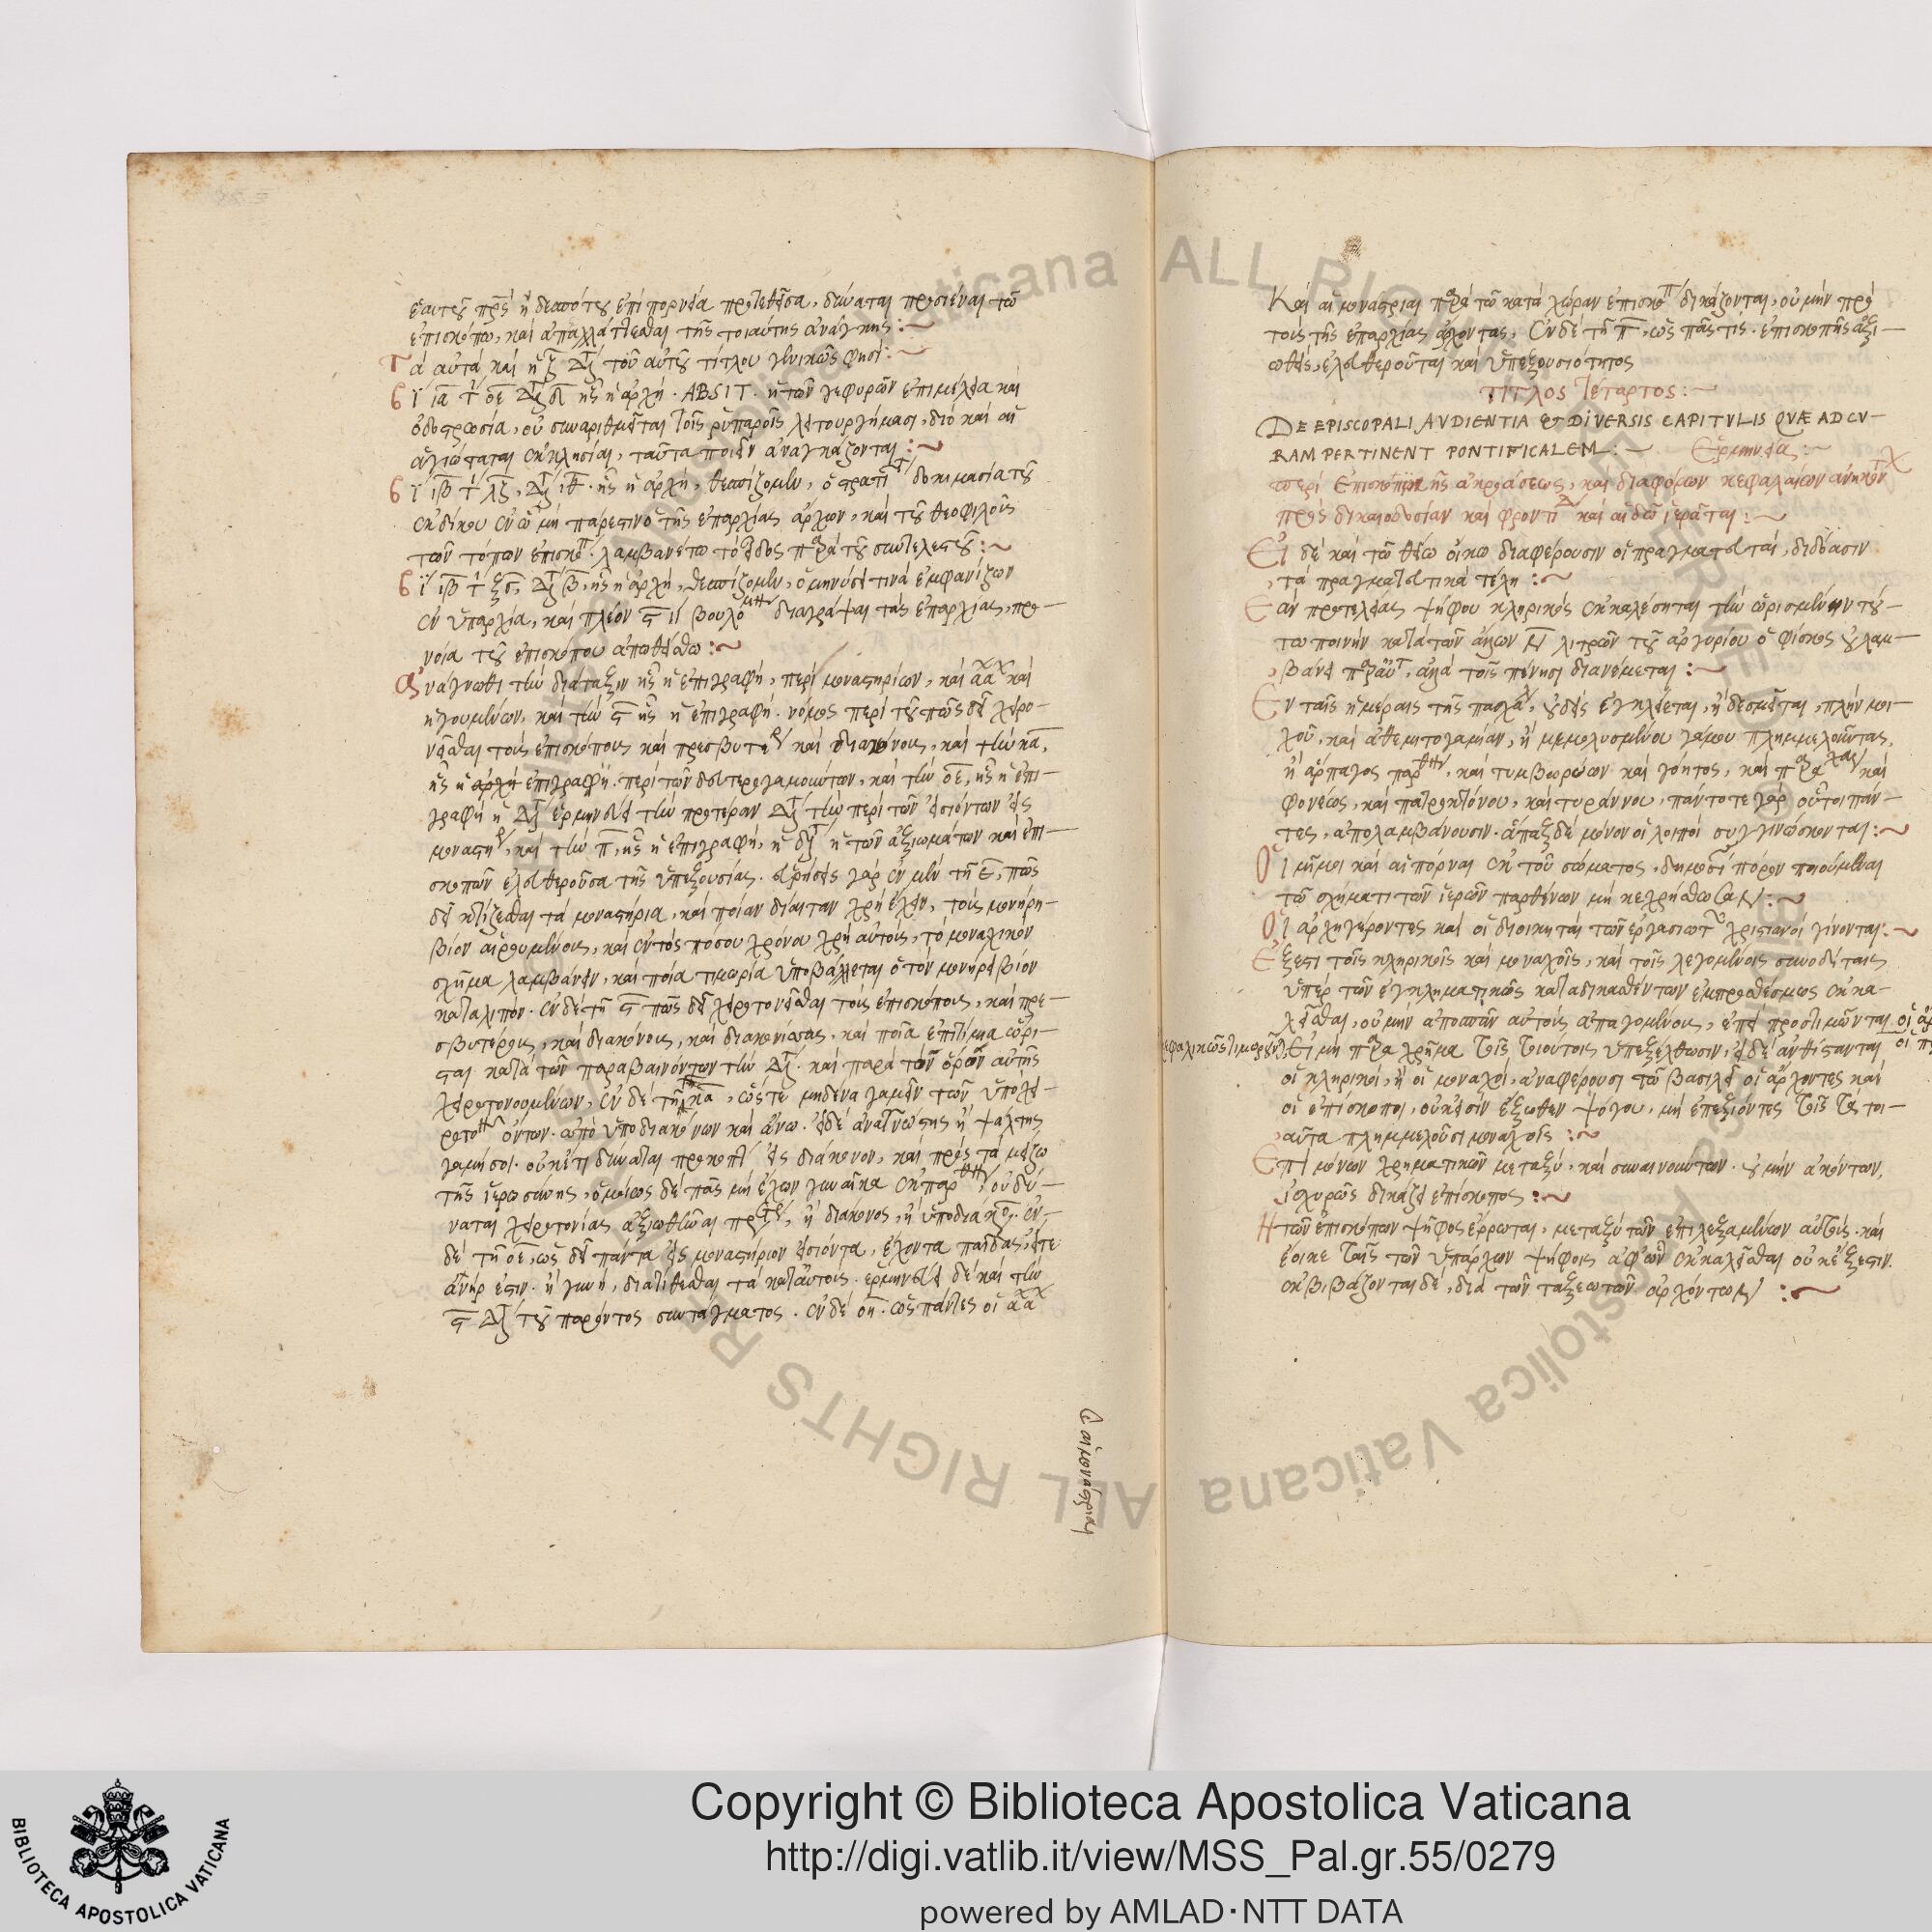 ἑαυτοῦ πρς ἢ δεσπότου ἐπὶ πορνεία προτεθεῖσα, δύναται προσιέναι τῶ
ἐπισκόπω, καὶ ἀπαλλάττεσθαι τῆς τοιαύτης ἀνάγκης :~
Τὰ αὐτὰ καὶ ἡ ξ διατ τοῦ αὐτοῦ τίτλου γενικῶς φησί :~
ἧς ἡ ἀρχή. ABSIT. ἡ τῶν γεφυρῶν ἐπιμέλεια καὶ
ὁδοστρωσία, οὐ συναριθμεῖται τοῖς ῥυπαροῖς λειτουργήμασι, διὸ καὶ αἱ
ἁγιώταται ἐκκλησίαι, ταῦτα ποιεῖν ἀναγκάζονται :~
ἧς ἡ ἀρχή, θεσπίζομεν, δοκιμασία τοῦ
ἐκδίκου ἐν ὧ μὴ πάρεστιν ὁ τῆς ἐπαρχίας ἄρχων, καὶ τοῦ θεοφιλοῦς
τῶν τόπων ἐπισκόπ. λαμβανέτω τὸ εἶδος παρὰ τοῦ συντελεστοῦ :~
ἧς ἡ ἀρχή, θεσπίζομεν, ὁ μηνύσει τινὰ ἐμφανίζων
ἐν ὑπαρχία, καὶ πλέον βουλομεν διαγράψαι τὰς ἐπαρχίας, προ—
νοία τοῦ ἐπισκόπου ἀπωθείσθω :~
Ἀνάγνωθι τὴν διάταξιν ἧς ἡ ἐπιγραφή, περὶ μοναστηρίων, καὶ καὶ
ἡγουμένων, καὶ τὴν ϛ ἧς ἡ ἐπιγραφή. νόμος περὶ τοῦ πῶς δεῖ χειρο-
νεῖσθαι τοὺς ἐπισκόπους καὶ πρεσβυτερ καὶ διακόνους, καὶ τὴν κα,
ἧς ἡ ἀρχὴ ἐπιγραφή. περὶ τῶν δευτερογαμούντων, καὶ τὴν οε, ἧς ἡ ἐπι—
γραφὴ ἡ διατ ἑρμηνεύει τὴν προτέραν διατ τὴν περὶ τῶν εἰσιόντων εἰς
μοναστηρ, καὶ τὴν π, ἧς ἡ ἐπιγραφή, ἡ διατ ἡ τῶν ἀξιωμάτων καὶ ἐπι—
σκοπῶν ἐλευθεροῦσα τῆς ὑπεξουσίας. εὑρήσεις γὰρ ἐν μὲν τῇ ε, πῶς
δεῖ κτίζεσθαι τὰ μοναστήρια, καὶ ποίαν δίαιταν χρὴ ἔχειν, τοὺς μονήρη—
βίον αἱρουμένους, καὶ ἐντὸς πόσου χρόνου χρὴ αὐτοὺς, τὸ μοναχικὸν
σχῆμα λαμβάνειν, καὶ ποία τιμωρία ὑποβάλλεται ὁ τὸν μονήρει βίον
καταλιπόν. ἐν δὲ τῇ ϛ πῶς δεῖ χειροτονεῖσθαι τοὺς ἐπισκόπους, καὶ πρε—
σβυτέρους, καὶ διακόνους, καὶ διακονίσσας, καὶ ποῖα ἐπιτίμια ὥρι—
σται κατὰ τῶν παραβαινόντων τὴν διατ. καὶ παρὰ τῶν ὅρων αὐτῆς
χειροτονουμένων, ἐν δὲ τῇ κα, ὥστε μηδένα γαμεῖν τῶν ὑποχει—
ροτον ὄντων. ἀπὸ ὑποδιακόνων καὶ ἄνω. εἰ δὲ ἀναγνώστης ἢ ψάλτης
γαμήσοι. οὐκέτι δύναται προκοπτ εἰς διάκονον, καὶ πρὸς τὰ μείζω
τῆς ἱερωσύνης, ὁμοίως δὲ πᾶς μὴ ἔχων γυναῖκα ἐκ παρθεν, οὐ δύ—
ναται χειροτονίας ἀξιωθῆναι πρ, ἢ διάκονος, ἢ ὑποδιακο. ἐν—
δὲ τῇ οε, ὡς δεῖ πάντα εἰς μοναστήριον εἰσιόντα, ἔχοντα παῖδας, εἴτε
ἀνήρ ἐστιν. ἢ γυνή, διατίθεσθαι τὰ κατ' αὐτούς. ἑρμηνεύει δὲ καὶ τὴν
ϛ διατ τοῦ παρόντος συντάγματος. ἐν δὲ ὡς πάντες οἱ
αἱ μονάστριαι
Καὶ αἱ μονάστριαι παρὰ τῶν κατὰ χώραν ἐπισκοπ δικάζονται, οὐ μὴν πρὸ
τοὺς τῆς ἐπαρχίας ἄρχοντας. ἐν δὲ τῇ π, ὡς πᾶς τις. ἐπισκοπῆς ἀξι—
ωθείς, ἐλευθεροῦται καὶ ὑπεξουσιότητος
τίτλος τέταρτος :~
DE EPISCOPALI AVDIENTIA ET DIVERSIS CAPITVLIS QVÆ AD CV—
RAM PERTINENT PONTIFICALEM :~ Ἑρμηνεία :~
περὶ ἐπισκοπικῆς ἀκροάσεως, καὶ διαφόρων κεφαλαίων ἀνηκόντ
πρὸς δικαιοδοσίαν καὶ φροντίδ καὶ αἰδῶ ἱερᾶται :~
Εἰ δὲ καὶ τῶ θείω οἴκω διαφέρουσιν οἱ πραγματευταί, διδόασιν
τὰ πραγματευτικὰ τέλη :~
Ἐὰν προτελείας ψήφου κληρικὸς ἐκκαλέσηται τὴν ὡρισμένην τού—
του ποινὴν κατὰ τῶν ἄλλων λιτρῶν τοῦ ἀργυρίου ὁ φίσκος οὐ λαμ—
βάνει παρ' αὐτ, ἀλλὰ τοῖς πένησι διανέμεται :~
Ἐν ταῖς ἡμέραις τῆς πασχαλ, οὐδεὶς ἐγκλείεται, ἢ δεσμεῖται, πλὴν μοι—
χοῦ, καὶ ἀθεμιτογαμίαν, ἢ μεμολυσμένου γάμου πλημμελοῦντας,
ἢ ἅρπαγος παρθεν, καὶ τυμβωρύων καὶ γόητος, καὶ παραχας καὶ
φονέως, καὶ πατροκτόνου, καὶ τυράννου, πάντοτε γὰρ οὗτοι πάν—
τες, ἀπολαμβάνουσιν. ἅπαξ δὲ μόνον οἱ λοιποὶ συγγινώσκονται :~
Οἱ μῖμοι καὶ αἱ πόρναι ἐκ τοῦ σώματος, δημοσι πόρον ποιούμεναι
τῶ σχήματι τῶν ἱερῶν παρθένων μὴ κεχρήσθωσαν :~
Οἱ ἀρχηγέροντες καὶ οἱ διοικηταὶ τῶν ἐργασιωτ χριστιανοὶ γίνονται :~
Ἔξεστι τοῖς κληρικοῖς καὶ μοναχοῖς, καὶ τοῖς λεγομένοις συνοδίταις
ὑπὲρ τῶν ἐγκληματικῶς καταδικασθέντων ἐμπροθέσμως ἐκκα—
λεῖσθαι, οὐ μὴν ἀποσπᾶν αὐτοὺς ἀπαγομένους, ἐπεὶ προστιμῶνται
Εἰ μὴ παρα χρῆμα τοῖς τοιούτοις ὑπεξέλθωσιν, εἰ δὲ ἀνθίστανται
οἱ κληρικοί, ἢ οἱ μοναχοί, ἀναφέρουσι τῶ βασιλεῖ οἱ ἄρχοντες καὶ
οἱ ἐπίσκοποι, οὐκ εἰσὶν ἔξωθεν ψόγου, μὴ ἐπεξιόντες τοῖς τὰ τοι—
αῦτα πλημμελοῦσι μοναχοῖς :~
Ἐπὶ μόνων χρηματικῶν μεταξύ, καὶ συναινούντων. οὐ μὴν ἀκόντων,
ἰσχυρῶς δικάζει ἐπίσκοπος :~
Ἡ τῶν ἐπισκόπων ψῆφος ἔρρωται, μεταξὺ τῶν ἐπιλεξαμένων αὐτούς. καὶ
ἔοικε ταῖς τῶν ὑπάρχων ψήφοις ἀφ' ὧν ἐκκαλεῖσθαι οὐκ ἔξεστιν.
ἐκβιβάζονται δὲ, διὰ τῶν ταξεωτῶν ἀρχόντων :~
Copyright © Biblioteca Apostolica Vaticana
http://digi.vatlib.it/view/MSS_Pal.gr.55/0279
powered by AMLAD·NTT DATA
BIBLIOTECA APOSTOLICA VATICANA